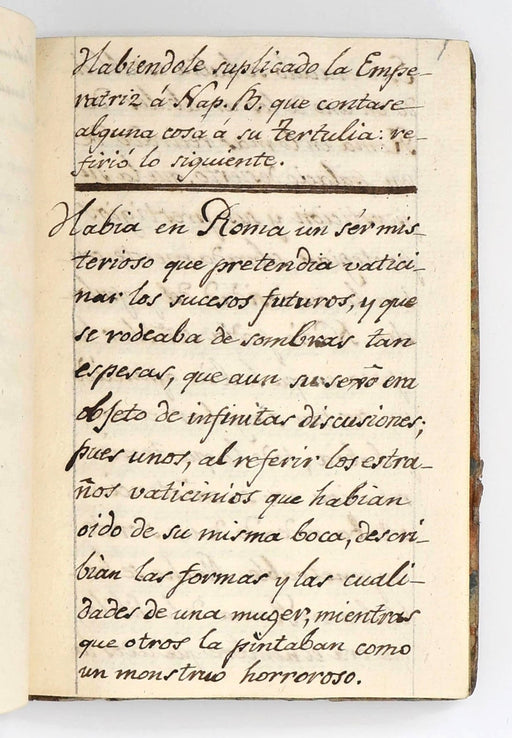 Habiendole suplicado la Empe-
ratriz á Nap. B. que contase
alguna cosa á su Tertulia: re-
firió lo siguiente.
Habia en Roma un sér mis-
terioso que pretendia vatici-
nar los sucesos futuros, y que
se rodeaba de sombras tan
espesas, que aun su sexô era
objeto de infinitas discusiones;
pues unos, al referir los estra-
ños vaticinios que habian
oido de su misma boca, descri-
bian las formas y las cuali-
dades de una muger, mientras
que otros la pintaban como
un monstruo horroroso.